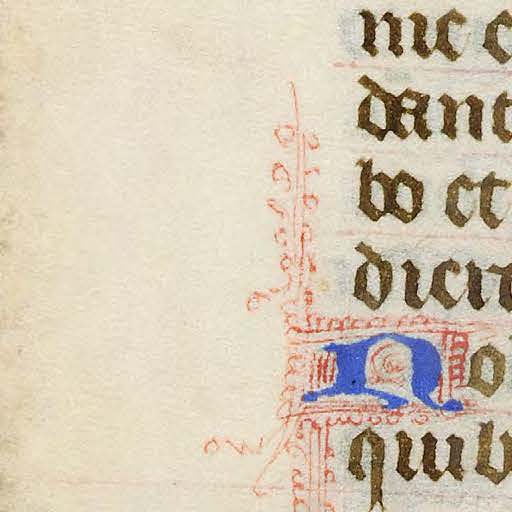 nie e
dant
bo et
dicit
No
quib